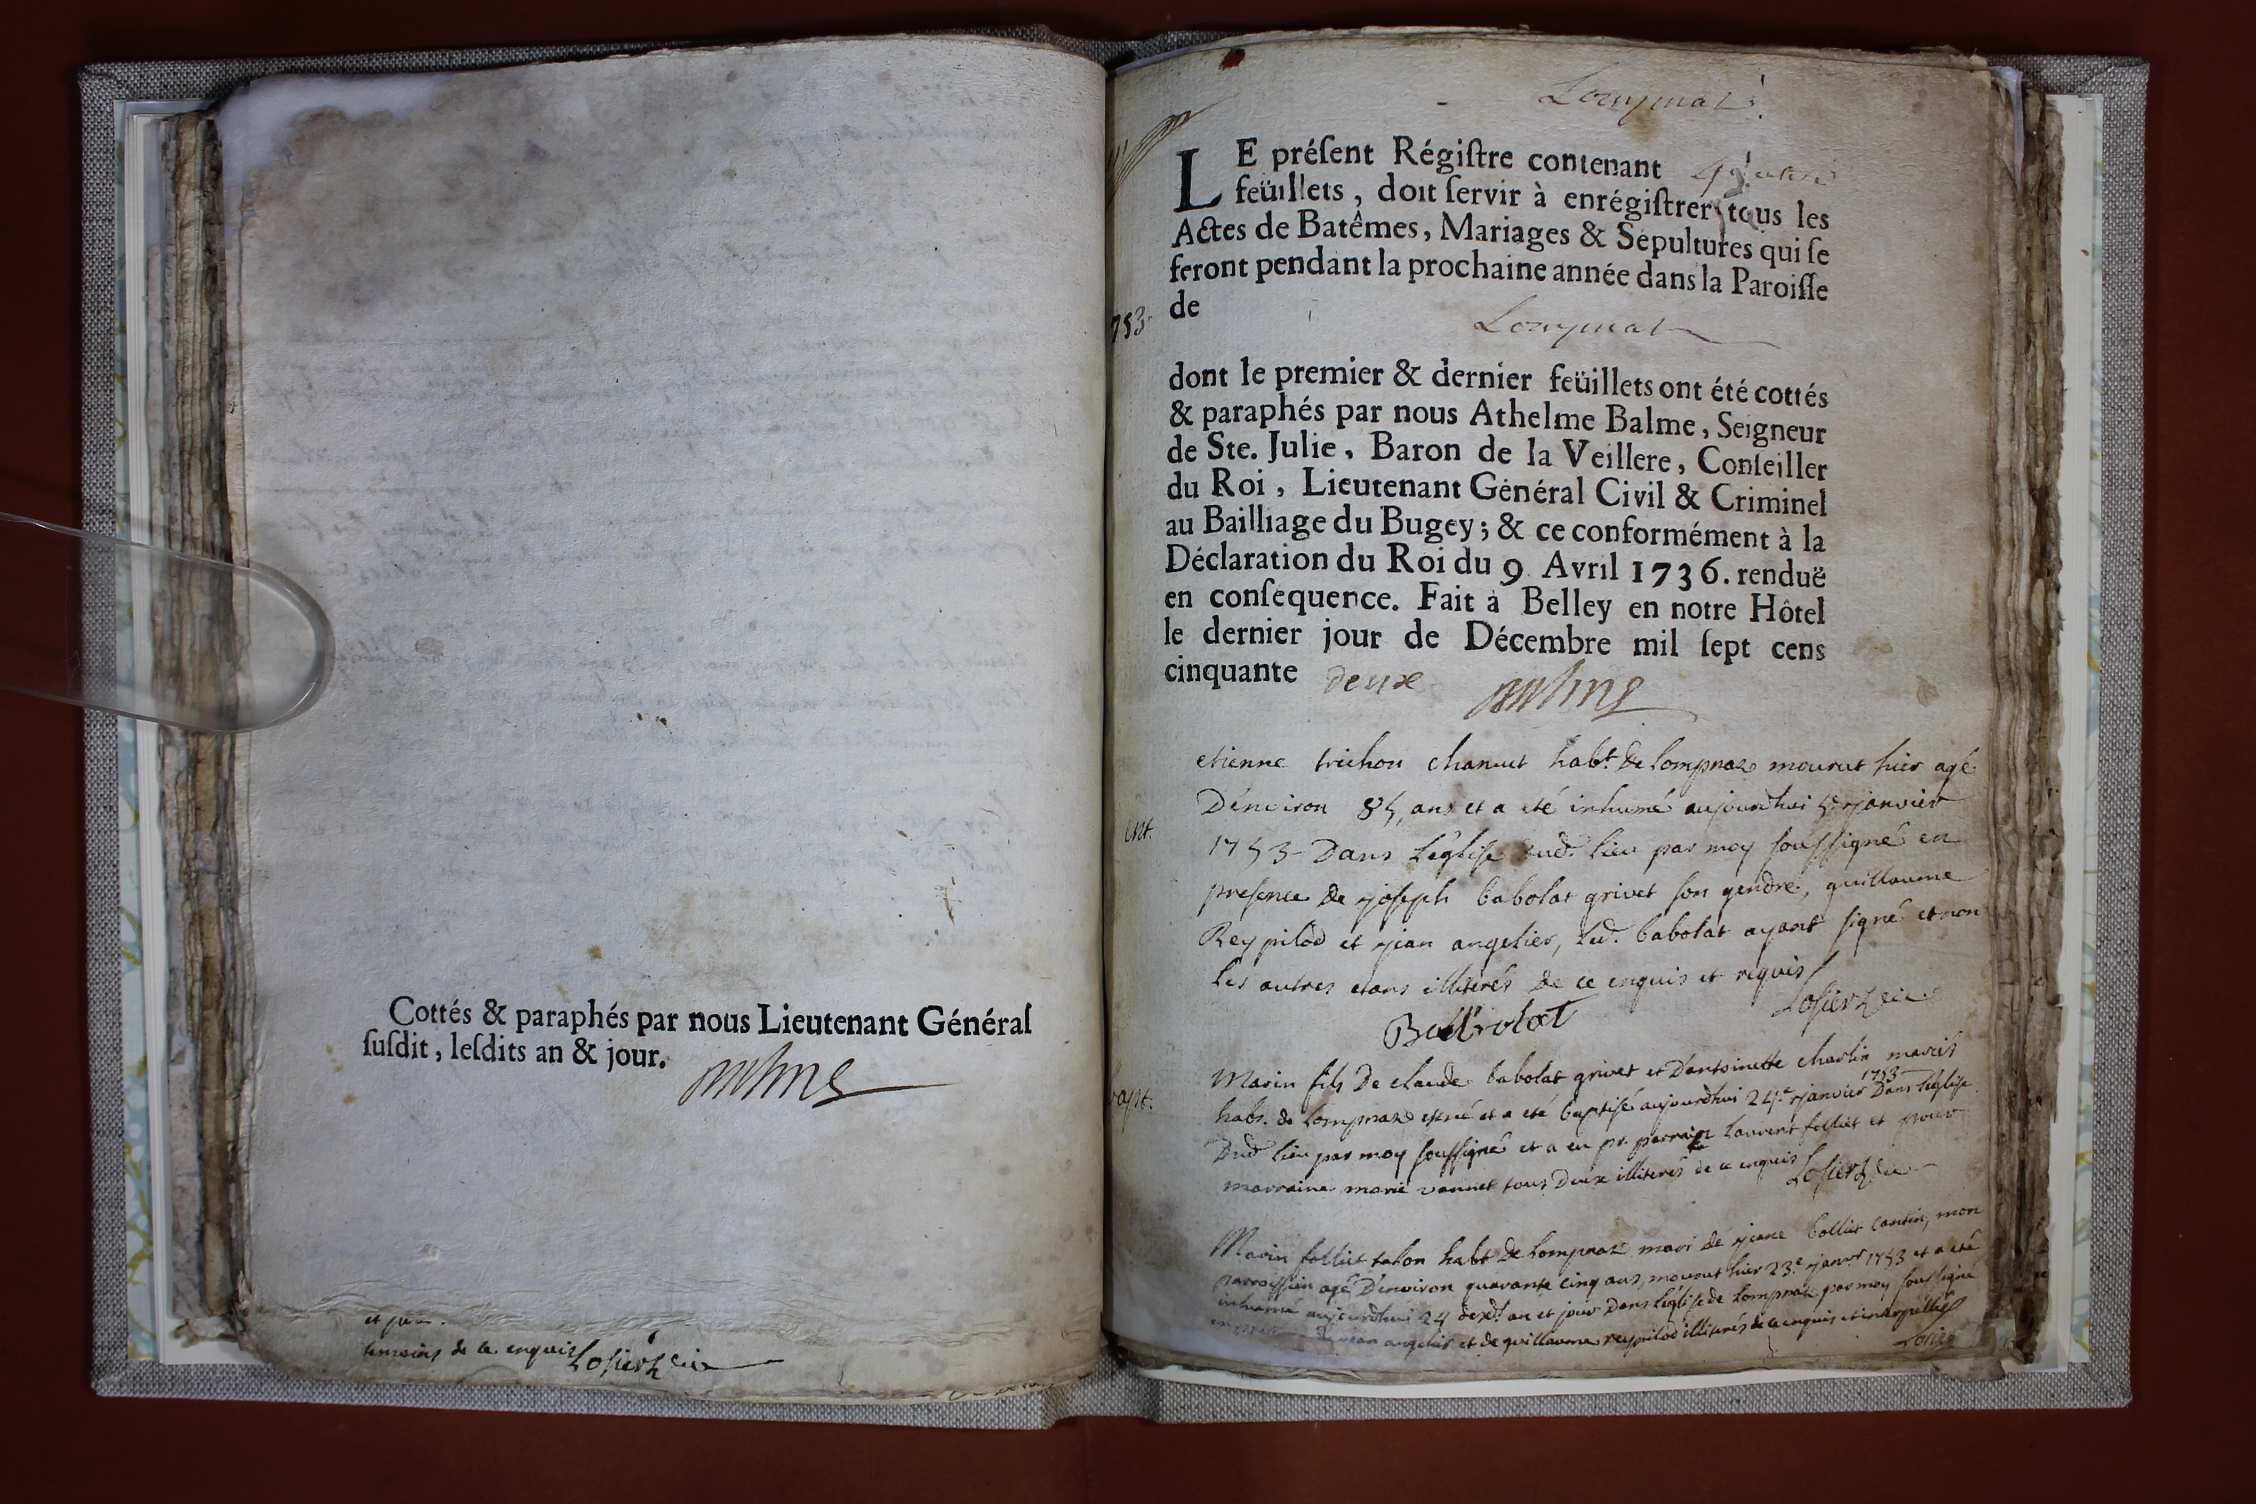 Cottés & paraphés par nous Lieutenant Général
ſuſdit, leſdits an & jour.
et
temoins de ce enquis Losier
Lompnat
LE préſent Régiſtre contenant
feüillets, doit ſervir à enrégiſtrer tous les
Actes de Batêmes, Mariages & Sépultures qui ſe
feront pendant la prochaine année dans la Paroiſſe
de
Lompnat
1753
dont le premier & dernier feüillets ont été cottés
& paraphés par nous Athelme Balme, Seigneur
de Ste. Julie, Baron de la Veillere, Conſeiller
du Roi, Lieutenant Général Civil & Criminel
au Bailliage du Bugey; & ce conformément à la
Déclaration du Roi du 9 Avril 1736. renduë
en conſequence. Fait à Belley en notre Hôtel
le dernier jour de Décembre mil ſept cens
cinquante deux
etienne trichon chanuet habt. De lompnaz mourut hier agé
D'environ 85, ans et a eté inhumé aujourdhui 5e janvier
ent.
1753 Dans l'église dud. lieu par moy soussigné en
presence de joseph babolat grivet son gendre, guillaume
Rey pilod et jean angelier, led. babolat ayant signé et non
les autres etans illiterés de ce enquis et requis
Losier
Babolat
Marin fils De claude babolat grivet et D'antoinette charlin mariés
bapt.
habs. de lompnaz est né et a eté baptisé aujourdhui 24.e janvier 1753 Dans l'église
Dud. lieu par moy soussigné et a eu pr. parrain laurent folliet et pour
marraine marie vannet tous Deux illiterés de ce enquis Losier
Marin folliet talon habt De lompnaz mari de jeane bolliet cantin, mon
parroissien agé D'environ quarante cinq ans, mourut hier 23.e janvr 1753 et a eté
inhumé aujourdhui 24 desd. an et jour Dans l'église de lompnaz par moy soussigné
en jean angelier et de guillaume rey pilod illiterés de ce enquis et interpellés
Losier